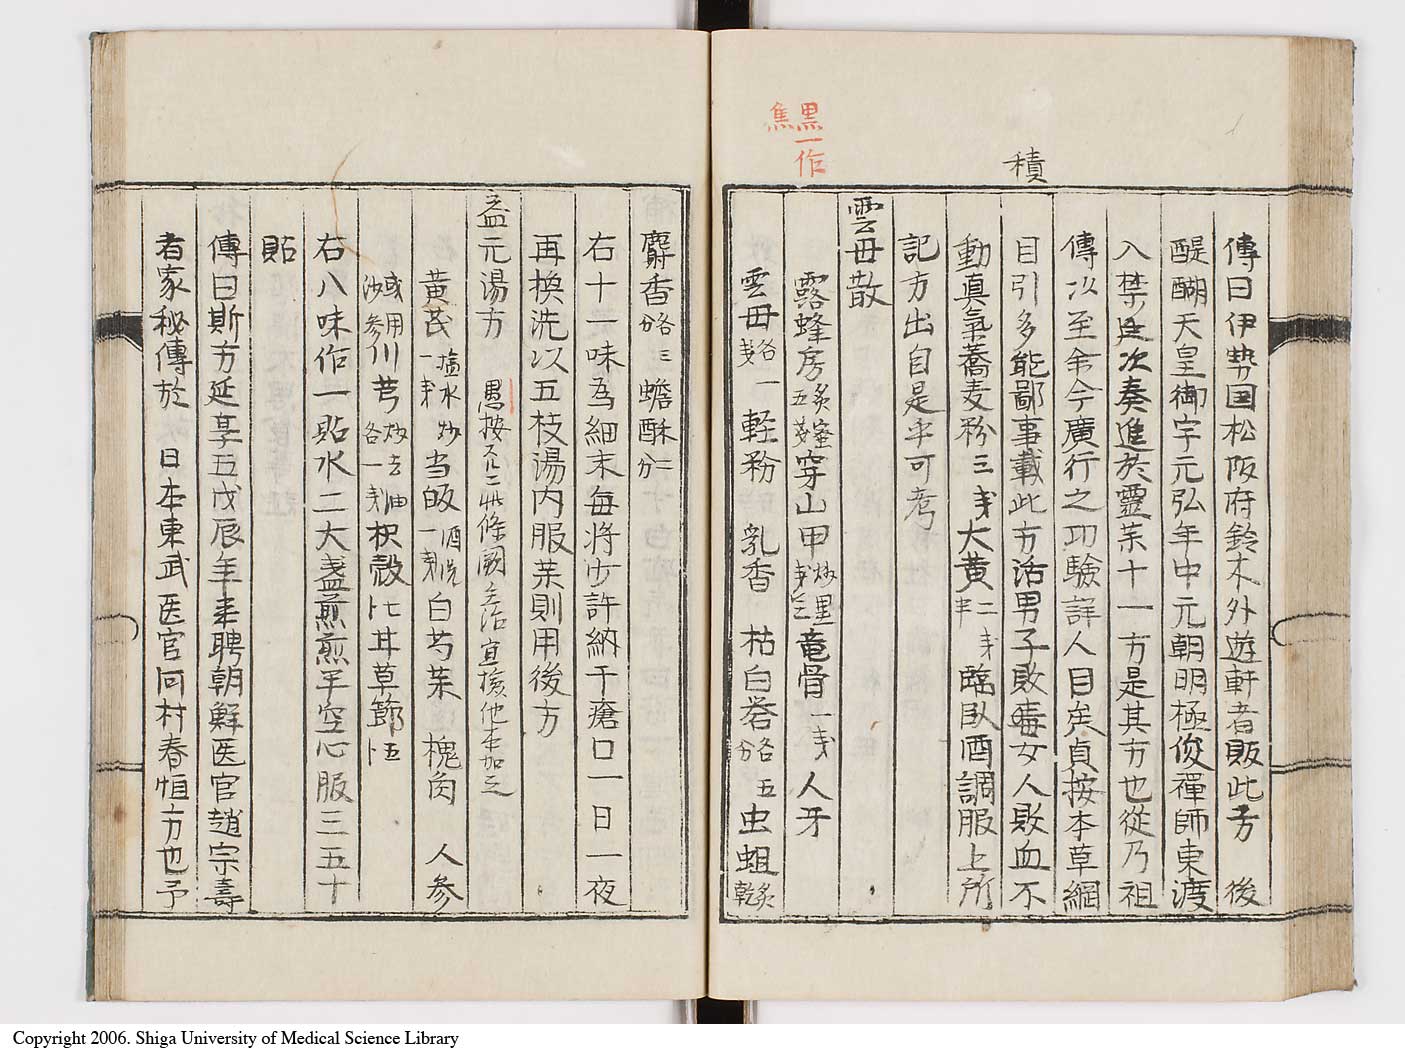 黒一作
焦
積
傳曰伊勢国松阪府鈴木外遊軒者販此方後
醍醐天皇御宇元弘年中元朝明極俊禪師東渡
入禁廷次奏進於靈茱十一方是其方也従乃祖
傳以至余今廣行之功験詳人目矣貞按本草綱
目引多能鄙事載此方活男子敗毒女人敗血不
動真氣蕎麦粉三戔大黄二戔半臨臥酒調服上所
記方出自是乎可考
雲母散
露蜂房蜜炙五戔穿山甲炒黒二戔竜骨一戔人牙
雲母各一戔軽粉 乳香 枯白礬各五分虫蛆炙乾
麝香各三分蟾酥二分
右十一味為細末毎将少許納干瘡口一日一夜
再換洗以五枝湯内服茱則用後方
益元湯方 愚按 二 條闕主治宜檢他本加之
黄芪塩水炒一戔当皈酒洗一戔白芍茱 槐角 人参
或用沙参川芎炒去油各一戔枳殻七甘草節五
右八味作一貼水二大盞煎煎半空心服三五十
貼
傳曰斯方延享五戊辰年来聘朝鮮医官趙宗壽
者家秘傳於 日本東武医官河村春恒方也予
Copyright 2006. Shiga University of Medical Science Library